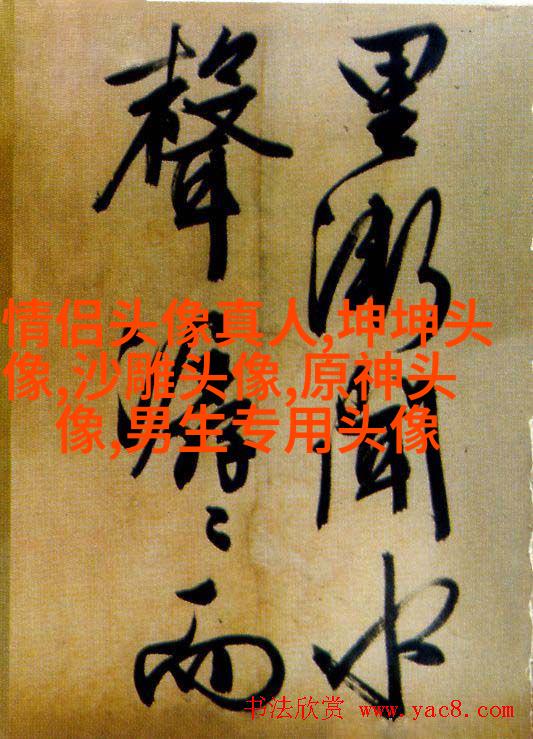 里漸聞水
聲潺々而
情侣头像真人,坤坤头
像,沙雕头像,原神头
像,男生专用头像
书法欣赏 www.yac8.com